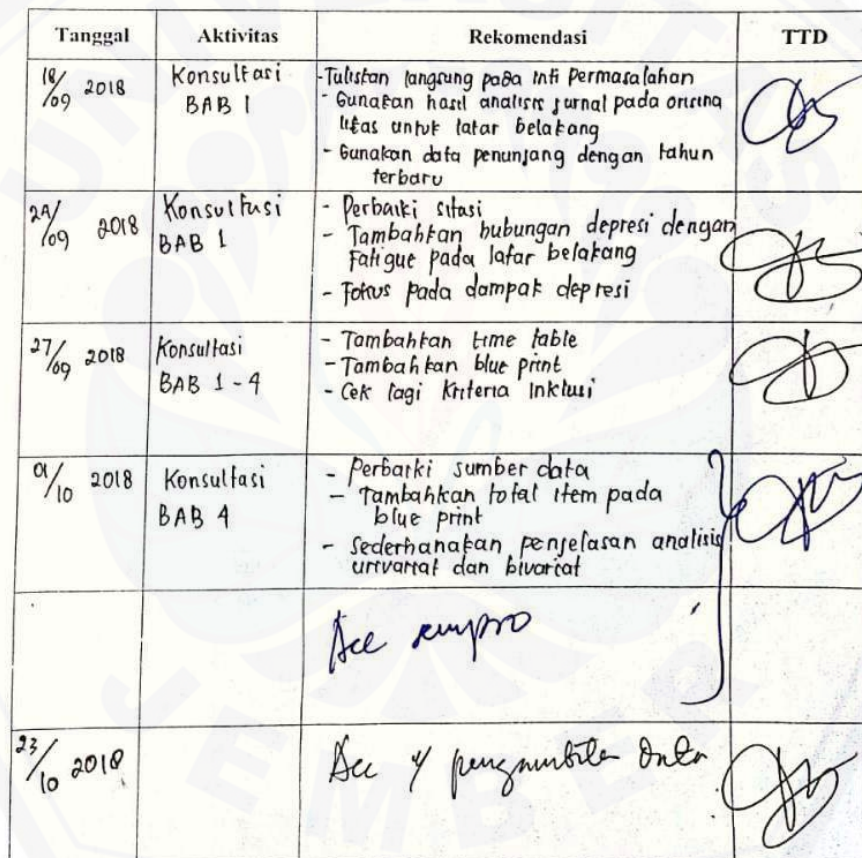 Tanggal Aktivitas Rekomendasi TTD
18/09 2018 Konsultasi BAB 1
- Tuliskan langsung pada inti permasalahan
- Gunakan hasil analisis jurnal pada orisina
litas untuk latar belakang
- Gunakan data penunjang dengan tahun
terbaru
24/09 2018 Konsultasi BAB 1
- Perbaiki sitasi
- Tambahkan hubungan depresi dengan
Fatigue pada latar belakang
- Fokus pada dampak depresi
27/09 2018 Konsultasi BAB 1-4
- Tambahkan time table
- Tambahkan blue print
- Cek lagi Kriteria Inklusi
01/10 2018 Konsultasi BAB 4
- Perbaiki sumber data
- Tambahkan total item pada
blue print
- Sederhanakan penjelasan analisis
univariat dan bivariat
Acc sempro
23/10 2018 Acc u/ pengambilan data
UNIVERSITAS
JEMBER